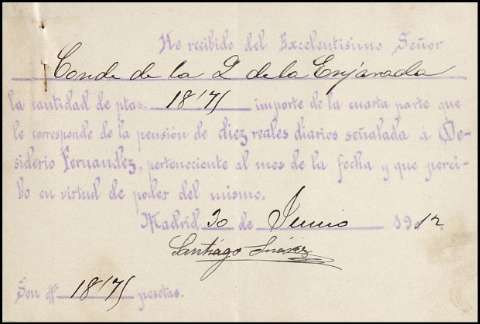 He recibido del Excelentísimo Señor
Conde de la P de la Enjarada
la cantidad de ptas. 18'75 importe de la cuarta parte que
le corresponde de la pensión de diez reales diarios señalada á De-
siderio Fernandez, perteneciente al mes de la fecha y que perci-
bo en virtud de poder del mismo.
Madrid 30 de Junio 1912
Santiago Suárez
Son # 18'75 pesetas.